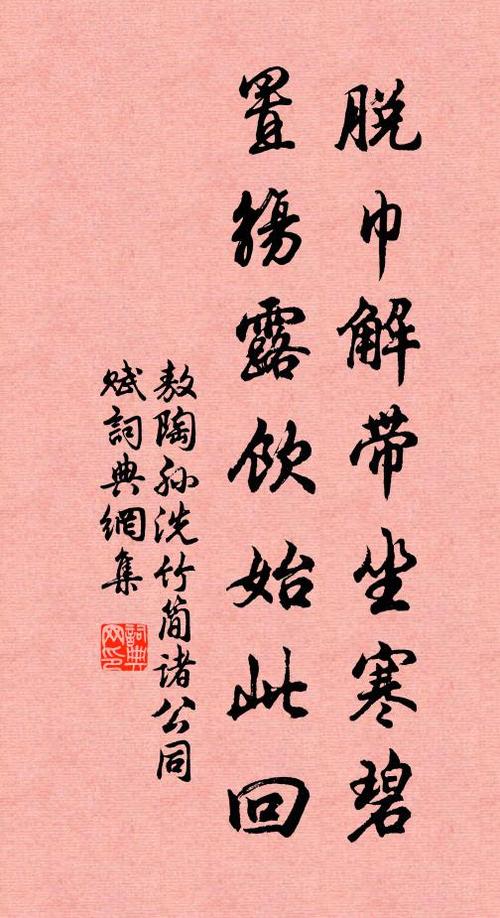 脱巾解带坐寒碧
置觞露饮始此回
敖陶孙洗竹简诸公同
赋詞典網集
詞典
网印